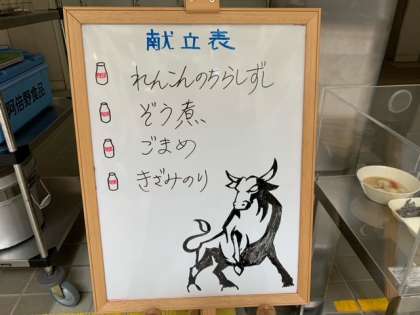 献立表
れんこんのちらしずし
ぞう煮
ごまめ
きざみのり
阿倍野食品